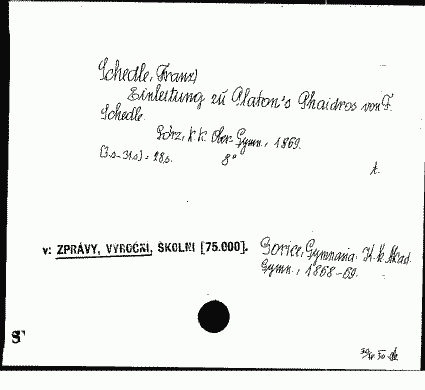 Schedle, Franz)
Einleitung zu Platon's Phaidros von F.
Schedle.
Görz, k.k. Ober-Gymn., 1869.
[3.s.-31.s] = 28.s. 8°
v: ZPRÁVY, VÝROČNÍ, ŠKOLNÍ [75.000].
Gorice, Gymnasia: K.k. Akad.
Gymn., 1868-69.
S